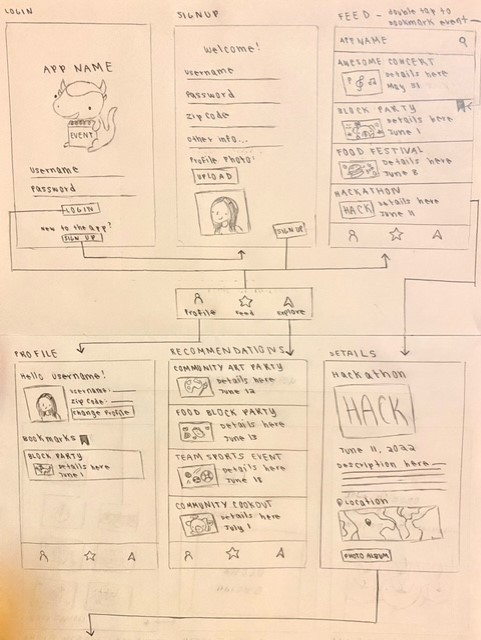 LOGIN
APP NAME
EVENT
username
password
LOGIN
new to the app?
SIGN UP
SIGNUP
welcome!
username
password
zip code
other info...
Profile Photo:
UPLOAD
SIGN UP
FEED - double tap to
bookmark event
APP NAME
AWESOME CONCERT
details here
May 31
BLOCK PARTY
details here
June 1
FOOD FESTIVAL
details here
June 8
HACKATHON
HACK
details here
June 11
Profile
Feed
explore
PROFILE
Hello username!
username:
zip code:
change profile
Bookmarks
BLOCK PARTY
details here
June 1
RECOMMENDATIONS
COMMUNITY ART PARTY
details here
June 12
FOOD BLOCK PARTY
details here
June 13
TEAM SPORTS EVENT
details here
June 18
COMMUNITY COOKOUT
details here
July 1
DETAILS
Hackathon
HACK
June 11, 2022
description here
location
PHOTO ALBUM